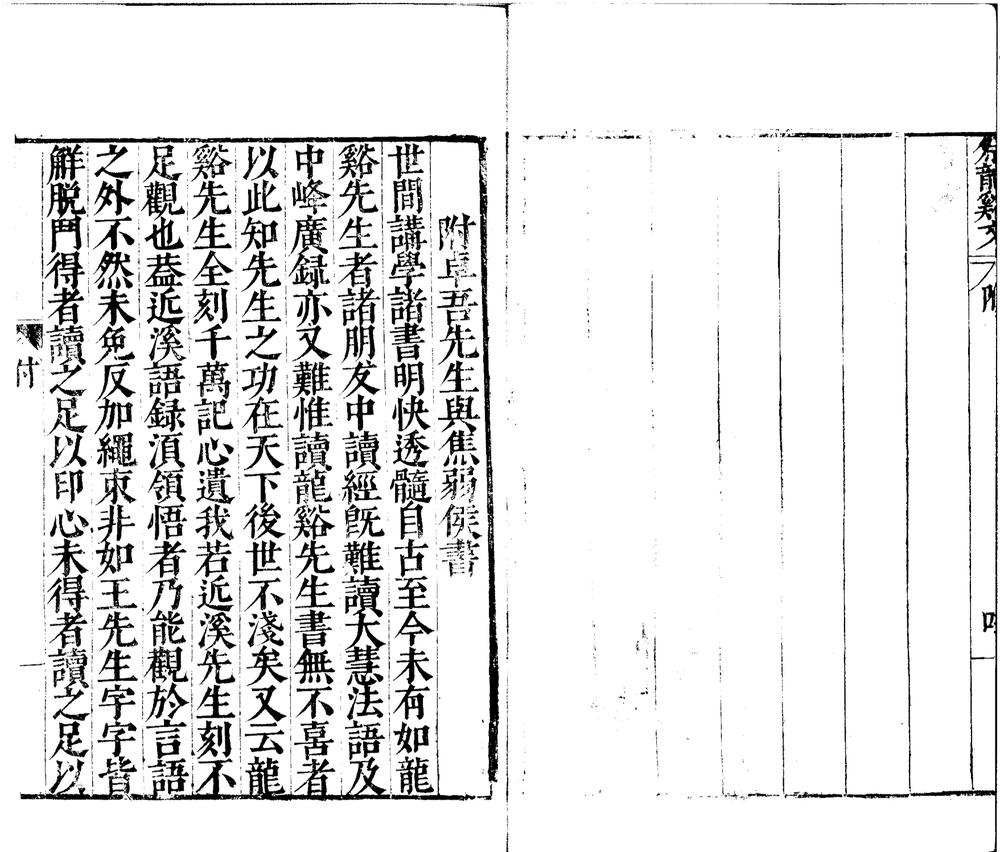 龍谿文
附卓吾先生與焦弱侯書
世間講學諸書明快透髓自古至今未有如龍
谿先生者諸朋友中讀經旣難讀大慧法語及
中峰廣録亦又難惟讀龍谿先生書無不喜者
以此知先生之功在天下後世不淺矣又云龍
谿先生全刻千萬記心遺我若近溪先生刻不
足觀也葢近溪語録湏領悟者乃能觀於言語
之外不然未免反加繩束非如王先生字字皆
觧脱門得者讀之足以印心未得者讀之足以
一